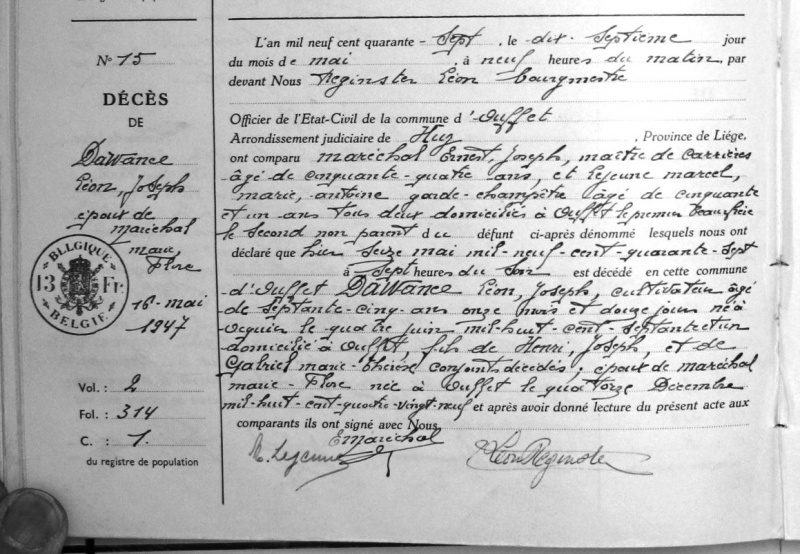 N° 15
DÉCÈS
DE
Dawance
Léon, Joseph
époux de
maréchal
marie,
Flore
BELGIQUE
13 Fr.
BELGIE
16 - mai
1947
Vol. : 2
Fol. : 314
C. : 1.
du registre de population
L'an mil neuf cent quarante - sept, le dix-septième jour
du mois de mai, à neuf heures du matin, par
devant Nous Reginster Léon bourgmestre
Officier de l'Etat-Civil de la commune d'Ouffet
Arrondissement judiciaire de Huy, Province de Liége,
ont comparu maréchal Ernest, Joseph, maître de Carrières
âgé de cinquante-quatre ans, et Lejeune marcel,
marie, antoine garde-champêtre âgé de cinquante
et un ans tous deux domiciliés à Ouffet le premier beau-frère
le second non parent du défunt ci-après dénommé lesquels nous ont
déclaré que hier seize mai mil-neuf-cent-quarante-sept
à sept heures du soir est décédé en cette commune
d'Ouffet Dawance Léon, Joseph, cultivateur âgé
de septante-cinq-ans onze mois et douze jours né à
Ocquier le quatre juin mil-huit-cent-septante et un
domicilié à Ouffet, fils de Henri, Joseph, et de
Gabriel marie-thérèse conjoints décédés; époux de maréchal
marie-Flore née à Ouffet le quatorze Décembre
mil-huit-cent-quatre-vingt-neuf et après avoir donné lecture du présent acte aux
comparants ils ont signé avec Nous.
E Maréchal
M. Lejeune
Léon Reginster